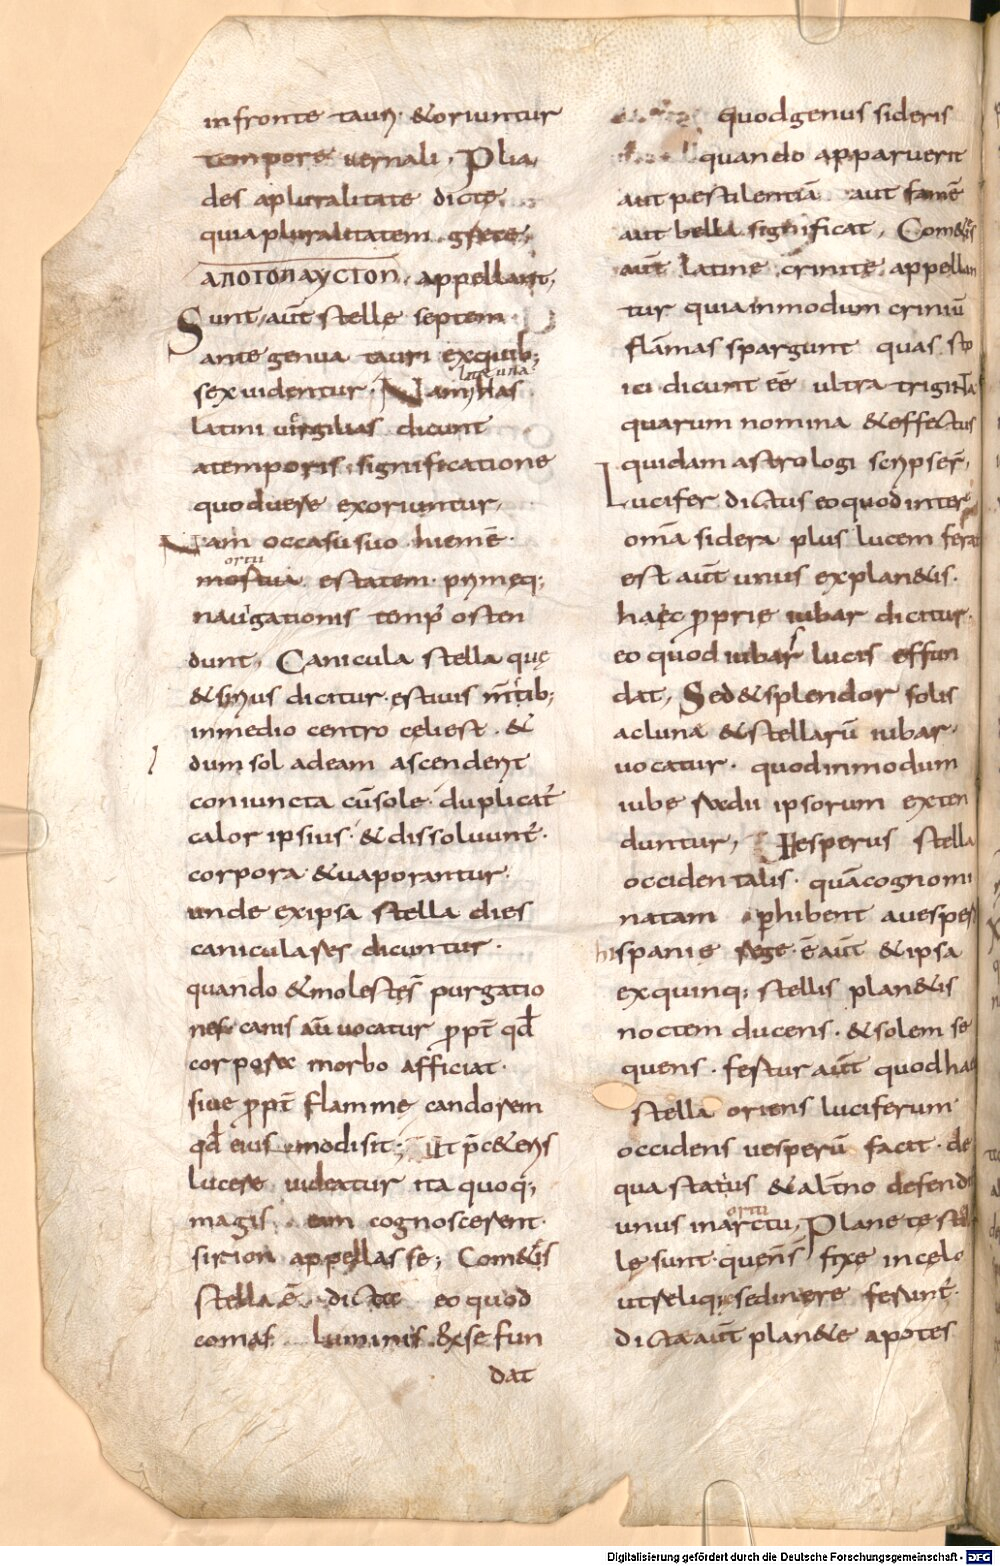 in fronte tauri · &oriuntur
tempore uernali, Plia,
des apluralitate dicte,
quia pluralitatem grete,
ΑΠΟΤΟΠΑΥСΤΟΝ, appellant;
Sunt, aut̄ stelle septem
ante genua tauri exquib;
latet una
sex uidentur · Nam has
latini uirgilias dicunt
atemporis significatione
quo duere exoriuntur,
Nam occasu suo hiemē ·
ortu
estatem · primeq;
nauigationis temp̄ osten
dunt, Canicula stella quę
&sirius dicitur · estiuis m̄sib;
inmedio centro celi est · &
dum sol adeam ascendent
coniuncta cū sole · duplicat̄
calor ipsius · &dissoluunt̄ ·
corpora &uaporantur ·
unde exipsa stella dies
caniculares dicuntur ·
quando &molestęs purgatio
nes canis aū uocatur ꝓpt̄ qd̄
corpora morbo afficiat ·
siue ꝓpt̄ flamme candorem
qd̄ eius modi sit; Ut p̄c&eris
lucere uideatur ita quoq;
magis eam cognoscerent
sirion appellasse; Com&is
stella ē dicta eo quod
comas luminis &xse fun
dat
quod genus sideris
quando apparuerit
aut pestilentiā aut famē
aut bella significat, Com&is
aut̄ latine crinite, appellan
tur quia inmodum criniū
flāmas spargunt quas sto
ici dicunt eē ultra triginta
quarum nomina &effectus
quidam astrologi scripser̄,
Lucifer dictus eo quod inter
omā sidera plus lucem ferat
est aut̄ unus explan&is ·
haec ꝓprie iubar dicitur ·
eo quod iubar lucis effun
dat, Sed &splendor solis
acluna &stellarū iubar ·
uocatur · quod inmodum
iube radii ipsorum exten
duntur, Hesperus stella
occidentalis · quācognomi
natam phibent auespero
hispanie rege · ē aut̄ &ipsa
exquinq; stellis plan&is
noctem ducens · &solem se
quens · fertur aut̄ quod haec
stella oriens luciferum
occidens uesperū facit · de
qua statius &alt̄no defend
ortu
unus in, Planete stel
le sunt · quen̄s fixe incelo
ut relique sed in ere ferunt̄ ·
dicta aut̄ plan&e apotes
Digitalisierung gefördert durch die Deutsche Forschungsgemeinschaft - DFG